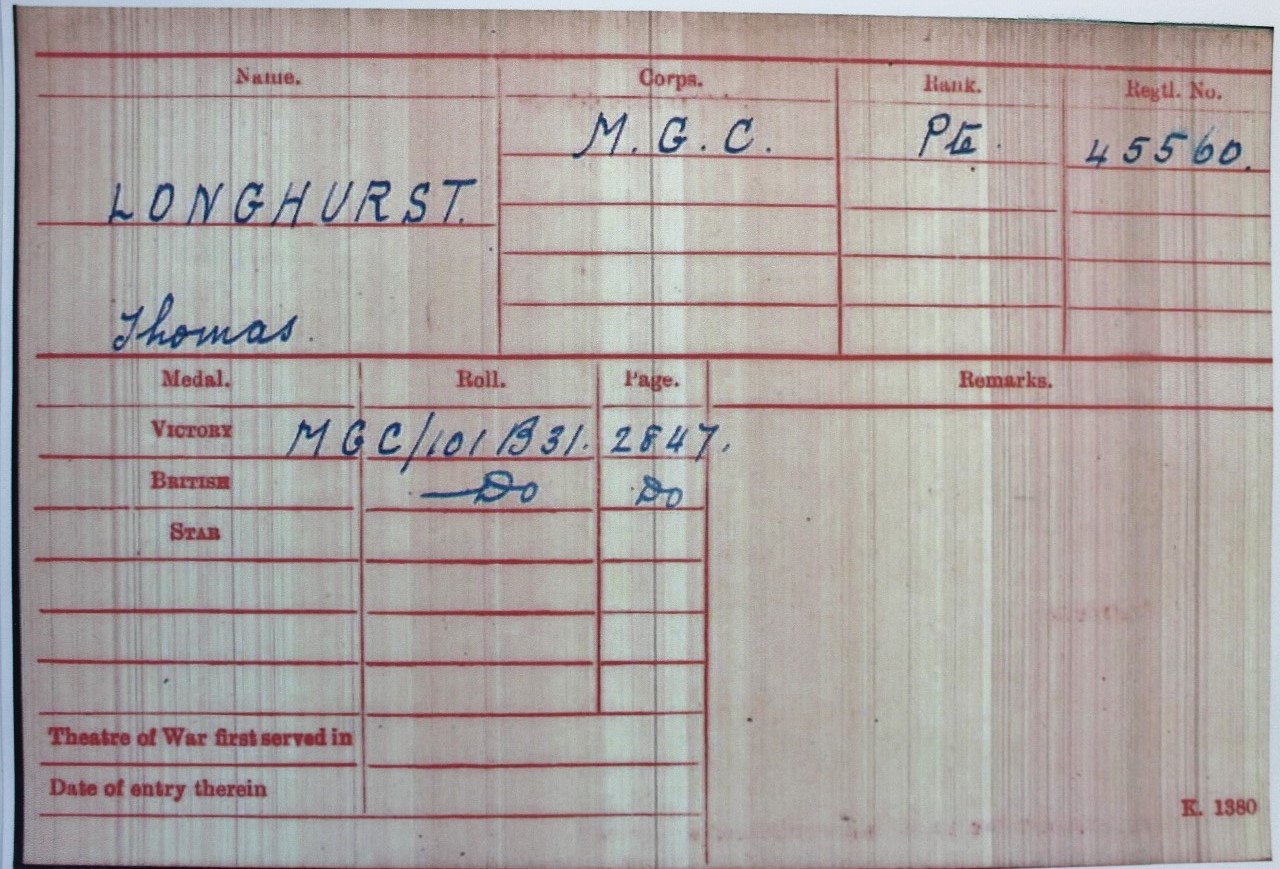 Name. Corps. Rank. Regtl. No.
M.G.C. Pte. 45560.
LONGHURST.
Thomas.
Medal. Roll. Page. Remarks.
VICTORY MGC/101 B31. 2847.
BRITISH —Do Do
STAR
Theatre of War first served in
Date of entry therein
K. 1380